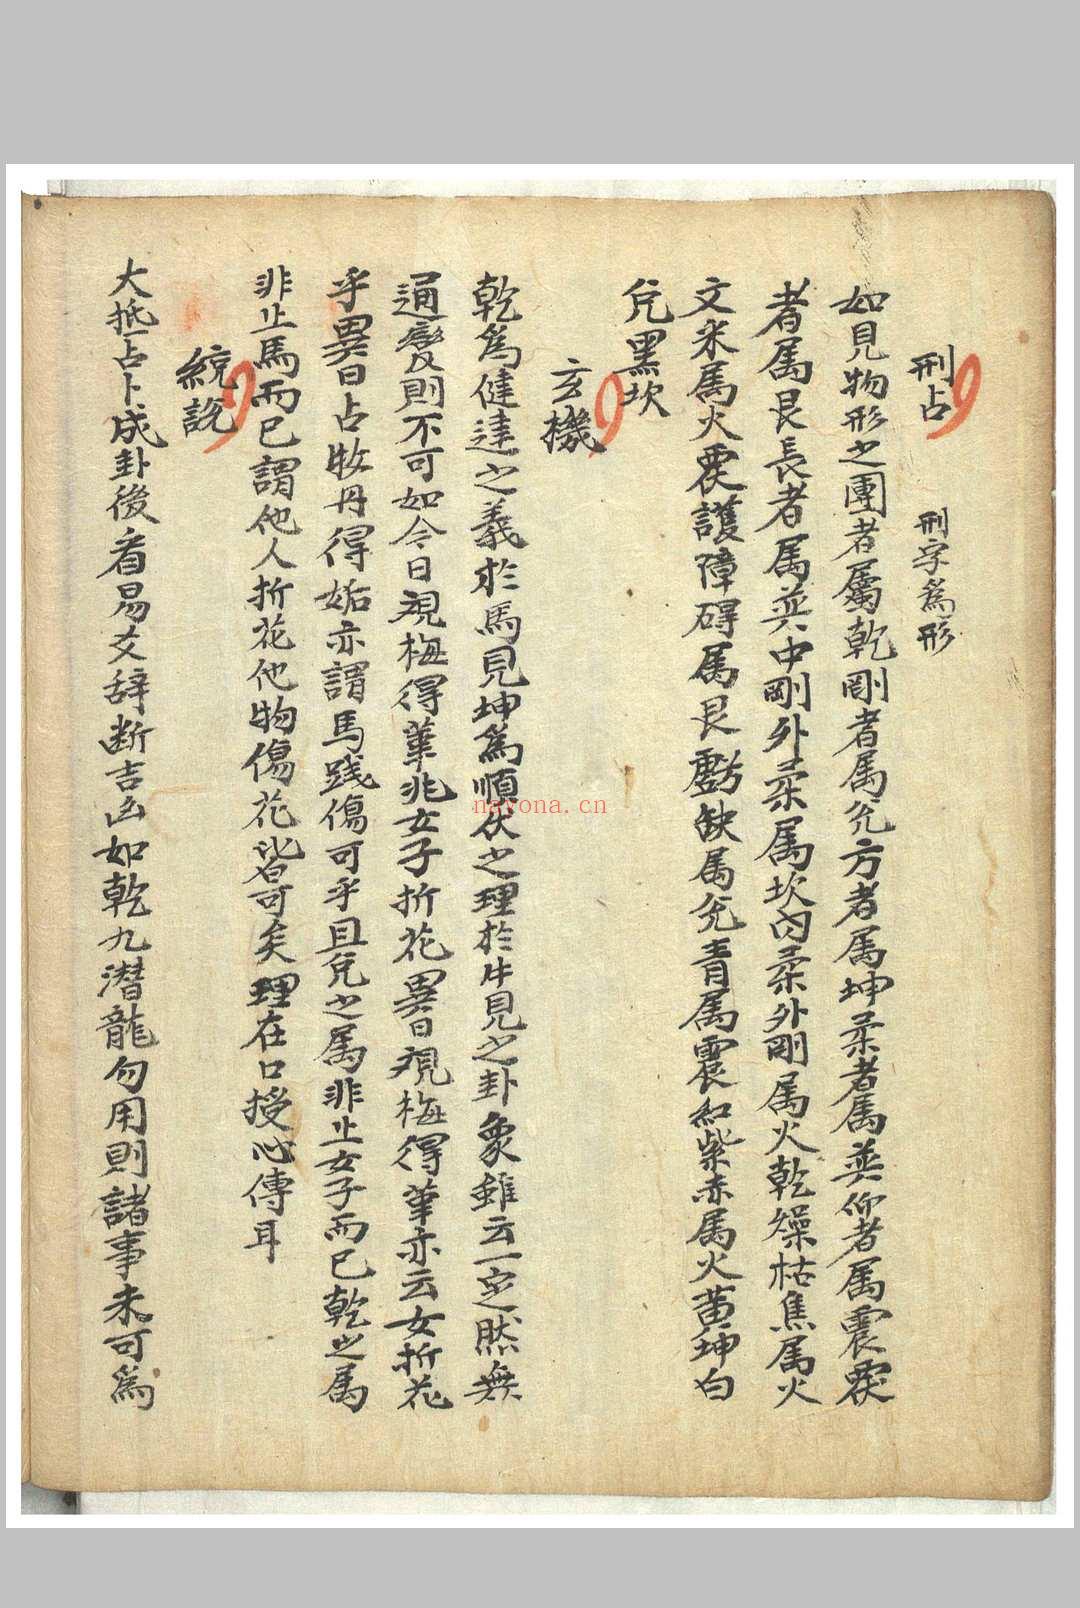 刑占 刑字為形
如見物形之團者屬乾剛者属兌方者属坤柔者属巽仰者属震覆
者属艮長者属巽中剛外柔属坎內柔外剛属火乾燥枯焦属火
文米属火覆護障碍属艮虧缺属兌青属震紅紫赤属火黃坤白
兌黑坎
玄機
乾為健達之義於馬見坤為順伏之理於牛見之卦象雖云一定然無
通變則不可如今日視梅得革兆女子折花異日視梅得革亦云女折花
乎異日占牧丹得姤亦謂馬践傷可乎且兌之属非止女子而已乾之属
非止馬而已謂他人折花他物傷花皆可矣理在口授心傳耳
総說
大抵占卜成卦後看易爻辞断吉凶如乾九潜龍勿用則諸事未可為
nayona.cn